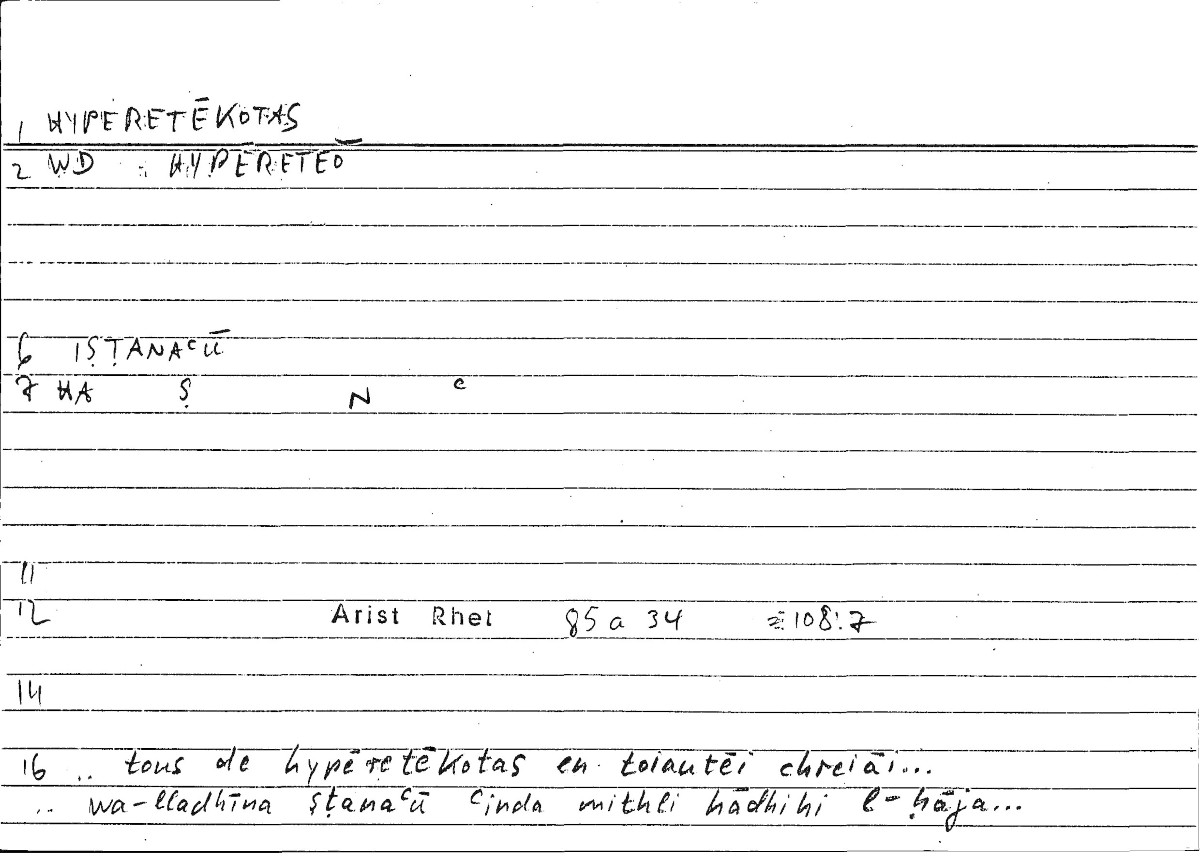 1 HYPĒRETĒKOTAS
2 WD : HYPĒRETEŌ
6 IṢṬANAᶜŪ
7 HA Ṣ N ᶜ
11
12 Arist Rhet 85 a 34 = 108:7
14
16 .. tous de hypēretēkotas en toiautēi chreiāi...
.. wa-lladhīna ṣṭanaᶜū ᶜinda mithli hādhihi l-ḥāja...